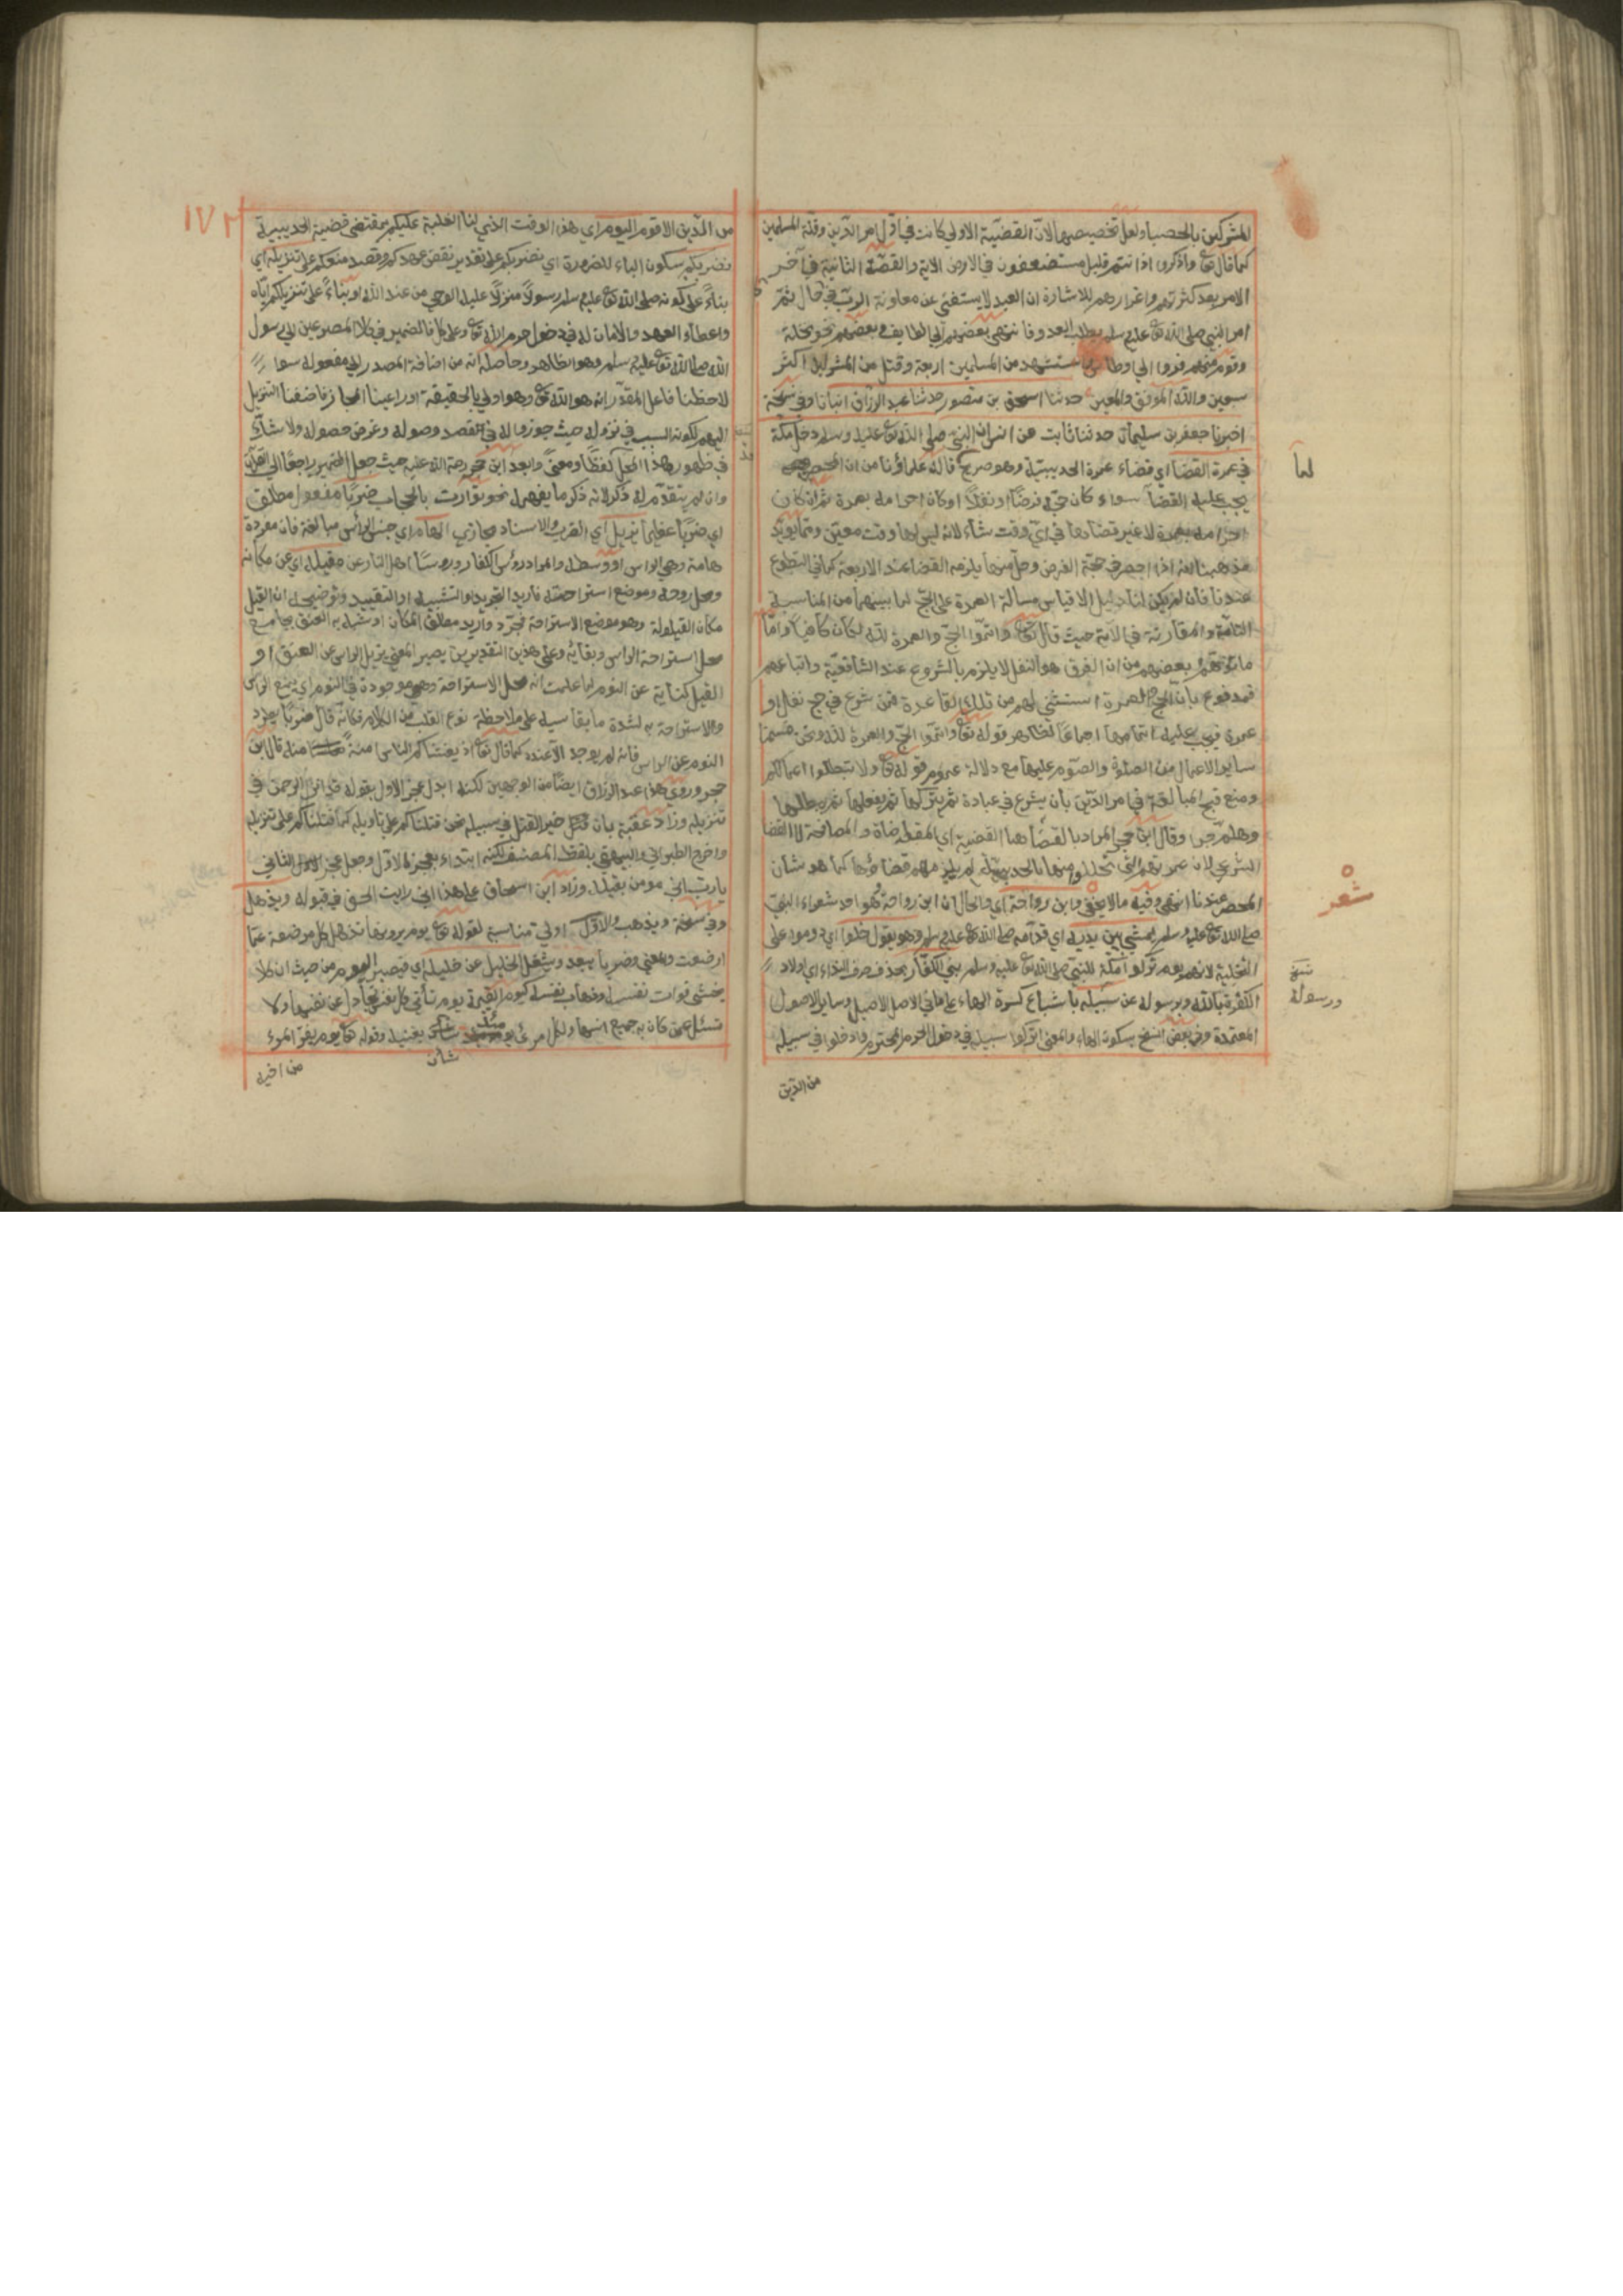 المشركين بالحصباء ولعل تخصيصها لان القضية الاولي كانت في اول امر الدين وقلة المسلمين
كما قال تع واذكروا اذ انتم قليل مستضعفون في الارض الاية والقضية الثانية في آخر
الامر بعد كثرتهم واغترارهم للاشارة ان العبد لا يستغني عن معاونة الرب في حال ثم
امر النبي صلي الله تع عليه وسلم بطلب العدو فانتهي بعضهم الي الطايف وبعضهم نحو نخلة
وقوم منهم فروا الي اوطاس واستشهد من المسلمين اربعة وقتل من المشركين اكثر
سبعين والله الموفق والمعين حدثنا اسحق بن منصور حدثنا عبد الرزاق انبانا وفي نسخة
اخبرنا جعفر بن سليمان حدثنا ثابت عن انس ان النبي صلي الله تع عليه وسلم دخل مكة
في عمرة القضا اي قضاء عمرة الحديبية وهو صريح قاله علماؤنا من ان المحصر
يجب عليه القضا سواء كان حجه فرضا او نفلا او كان احرامه بعمرة ثم ان كان
احرامه بعمرة لا غير قضاءها في اي وقت شاء لانه ليس لها وقت معين ومما يؤيد
مذهبنا انه اذا احصر في حجة الفرض وحل منها يلزمه القضا عند الاربعة كما في التطوع
عندنا فان لم يكن لنا دليل الا قياس مسالة العمرة علي الحج لما بينهما من المناسبة
التامة والمقارنة في الاية حيث قال تع واتموا الحج والعمرة لله لكان كافيا واما
ما توهم بعضهم من ان الفرق هو النفل لا يلزم بالشروع عند الشافعية واتباعهم
فمدفوع بان الحج والعمرة استثني لهم من تلك القاعدة فمن شرع في حج نفل او
عمرة فيجب عليه اتمامها اجماعا لظاهر قوله تع واتموا الحج والعمرة لله ونحن قسنا
ساير الاعمال من الصلوة والصوم عليهما مع دلالة عموم قوله تع ولا تبطلوا اعمالكم
ومنع قبح المبالغة في امر الدين بان يشرع في عبادة ثم يتركها ثم يفعلها ثم يبطلها
وهلم جرا وقال ابن حجر المراد بالقضا هنا القضية اي المقاضاة والمصالحة لا القضا
الشرعي لان عمرتهم التي تحللوا منها بالحديبية لم يلزمهم قضاؤها كما هو شأن
المحصر عندنا انتهي وفيه ما لا يخفي وابن رواحة اي والحال ان ابن رواحة وهو احد شعراء النبي
صلي الله تع عليه وسلم يمشي بين يديه اي قدامه صلي الله تع عليه وسلم وهو يقول خلوا اي دوموا علي
التخلية لانهم يومئذ تركوا مكة للنبي صلي الله تع عليه وسلم بني الكفار بحذف حرف النداء اي اولاد
الكفرة بالله وبرسوله عن سبيله باشباع كسرة الهاء علي ما في الاصل الاصيل وساير الاصول
المعتمدة وفي بعض النسخ بسكون الهاء والمعني اتركوا سبيله في دخول الحرم المحترم وادخلوا في سبيله
من الدين
لما
شعر
نسخة
ورسوله
١٧٢
من الدين الاقوم اليوم اي هذا الوقت الذي لنا الغلبة عليكم بمقتضي قضية الحديبية
نضربكم سكون الباء للضرورة اي نضربكم علي تقدير نقض عهدكم وقصد منعكم علي تنزيله اي
بناء علي كونه صلي الله تع عليه وسلم رسولا منزلا عليه الوحي من عند الله او بناء علي تنزيلكم اياه
واعطاء العهد والامان له في دخول حرم الله تع وعلي كل فالضمير في كلا المصرعين الي رسول
الله صلي الله تع عليه وسلم وهو الظاهر وحاصله انه من اضافة المصدر الي مفعوله سوا
لاحظنا فاعل المقدر انه هو الله تع وهو اولي بالحقيقة او راعينا المجاز فاضفنا التنزيل
اليهم لكونه السبب في نزوله حيث جوزوا له في القصد وصوله وغرض حصوله ولا شك
في ظهور هذا المحل لفظا ومعني وابعد ابن حجر رحمة الله عليه حيث جعل الضمير راجعا الي القرآن
وان لم يتقدم له ذكر لانه ذكر ما يفهمه نحو توارت بالحجاب ضربا مفعول مطلق
اي ضربا عظيما يزيل اي الضرب والاسناد مجازي الهام اي جنس الرأس مبالغة فان مفرده
هامة وهي الراس او وسطه والمراد رؤس الكفار ورؤساء اهل النار عن مقيله اي عن مكانه
ومحل روحه وموضع استراحته فاريد التجريد او التشبيه او التقييد وتوضيحه ان المقيل
مكان القيلولة وهو موضع الاستراحة فجرد واريد مطلق المكان او شبه به العنق بجامع
محل استراحة الراس وبقائه وعلي هذين التقديرين يصير المعني يزيل الراس عن العنق او
المقيل كناية عن النوم لما علمت انه محل الاستراحة وهي موجودة في النوم اي يمنع الراس
والاستراحة به لشدة ما يقاسيه علي ملاحظة نوع القلب من الكلام فكانه قال ضربا يطرد
النوم عن الراس فانه لم يوجد الا عنده كما قال تع اذ يغشاكم النعاس امنة منه قال ابن
حجر وروي هذا عبد الرزاق ايضا من الوجهين لكنه ابدل عجز الاول بقوله قد انزل الرحمن في
تنزيله وزاد عقبه بان خير القتل في سبيله نحن قتلناكم علي تاويله كما قتلناكم علي تنزيله
واخرج الطبراني والبيهقي بلفظ المصنف لكنه ابتداء بعجز الاول وجعل عجز الثاني
يا رب اني مومن بقيله وزاد ابن اسحاق علي هذا اني رايت الحق في قبوله ويذهل
وفي نسخة ويذهب والاول اولي مناسبة لقوله تع يوم ترونها تذهل كل مرضعة عما
ارضعت والمعني وضربا يبعد ويشغل الخليل عن خليله اي فيصير اليوم من حيث ان كلا
يخشي فوات نفسه وذهاب نفسه كيوم القيمة يوم تأتي كل نفس تجادل عن نفسها ولا
تسئل عمن كان به جميع انسها ولكل امرئ يومئذ شأن يغنيه وقوله تع يوم يفر المرء
من اخيه